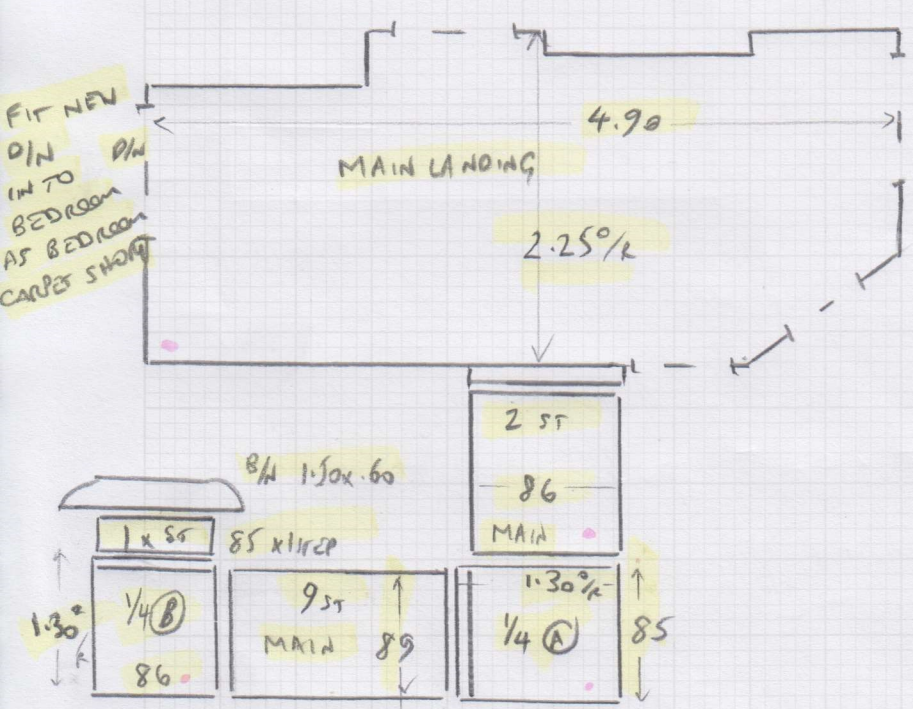 FIT NEW
D/N
D/N
IN TO
BEDROOM
AS BEDROOM
CARPET SHORT
4.90
MAIN LANDING
2.25 o/R
2 ST
86
MAIN
B/N 1.50x.60
1 x ST
85 x 1 STEP
1.30
1/4 B
86
9 ST
MAIN
89
1.30 o/R
1/4 A
85